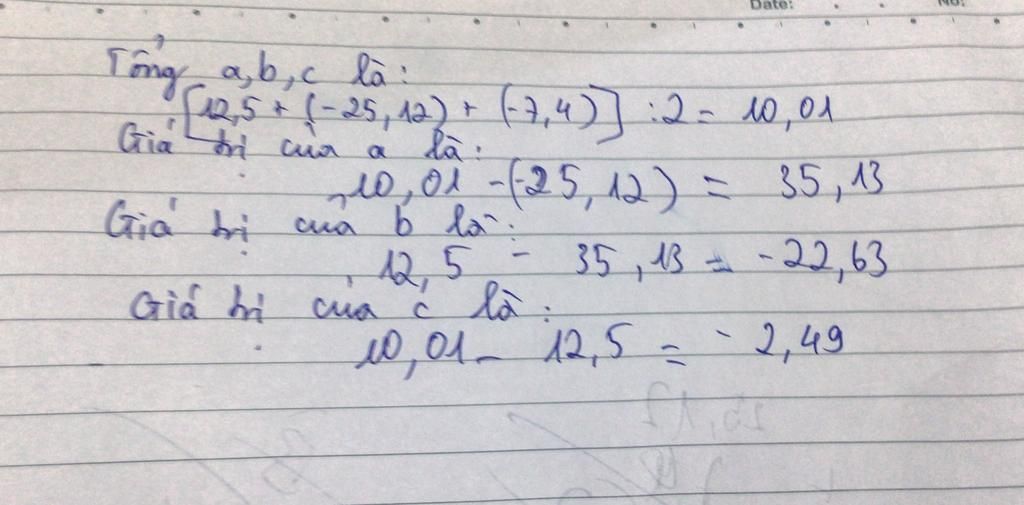 Date: No:
Tổng a,b,c là:
[12,5 + (-25,12) + (-7,4)] :2 = 10,01
Giá trị của a là:
10,01 - (-25,12) = 35,13
Giá trị của b là:
12,5 - 35,13 = -22,63
Giá trị của c là:
10,01 - 12,5 = -2,49